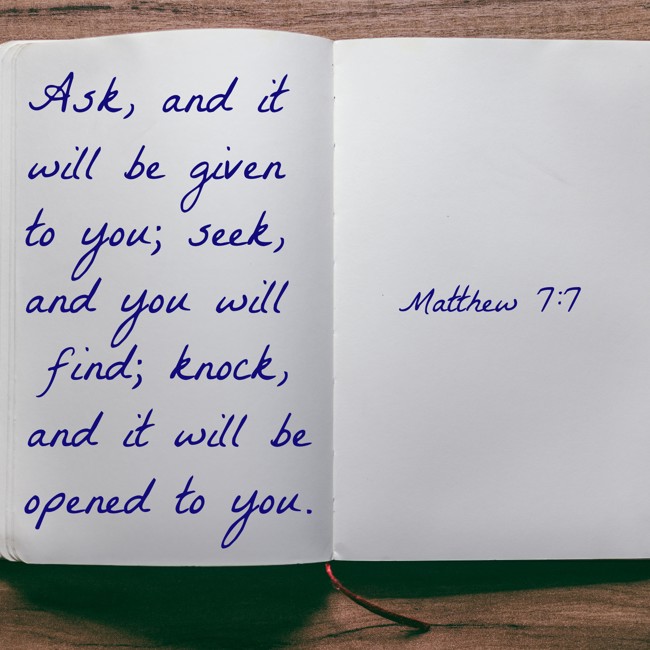 Ask, and it
will be given
to you; seek,
and you will
find; knock,
and it will be
opened to you.
Matthew 7:7